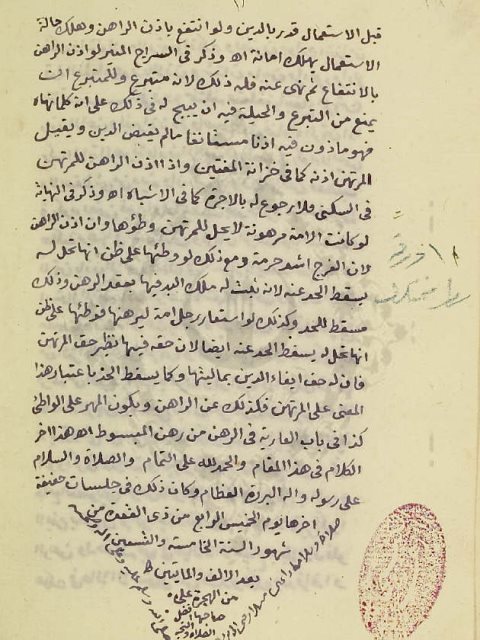 قبل الاستعمال قدر بالدين ولو انتفع باذن الراهن وهلك حالة
الاستعمال يهلك امانة اه وذكر في السراج المنير لو اذن الراهن
بالانتفاع ثم نهى عنه فله ذلك لانه متبرع وللمتبرع ان
يمنع من التبرع والحيلة فيه ان يبيح له في ذلك على انه كلما نهاه
فهو ماذون فيه اذنا مستانفا مالم يقبض الدين ويقبل
المرتهن اذنه كما في خزانة المفتين واذا اذن الراهن للمرتهن
في السكنى فلا رجوع له بالاجرة كما في الاشباه اه وذكر في النهاية
لو كانت الامة مرهونة لا يحل للمرتهن وطؤها وان اذن الراهن
لان الفرج اشد حرمة ومع ذلك لو وطئها على ظن انها تحل له
يسقط الحد عنه لانه يثبت له ملك اليد فيها بعقد الرهن وذلك
مسقط للحد وكذلك لو استعار رجل امة ليرهنها فوطئها على ظن
انها تحل له يسقط الحد عنه ايضا لان حقه فيها نظير حق المرتهن
فان له حق ايفاء الدين بماليتها وكما يسقط الحد باعتبار هذا
المعنى على المرتهن فكذلك عن الراهن ويكون المهر على الواطئ
كذا في باب العارية في الرهن من رهن المبسوط اه هذا اخر
الكلام في هذا المقام والحمد لله على التمام والصلاة والسلام
على رسوله واله البررة العظام وكان ذلك في جلسات خفيفة
اخرها يوم الخميس الرابع من ذي القعدة من
شهور السنة الخامسة والتسعين
بعد الالف والمايتين
من الهجرة على
صاحبها افضل
الصلاة
١١ ورقة